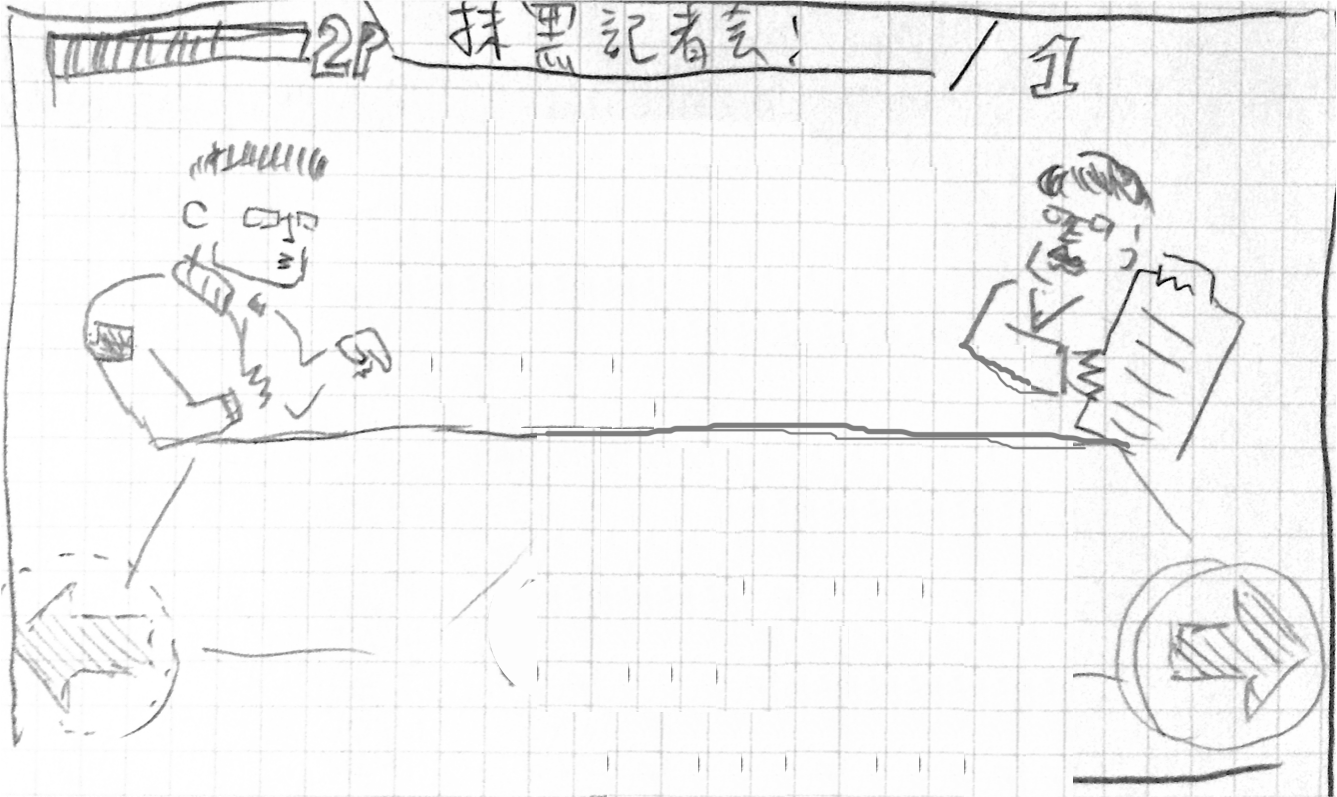 2P 抹黑記者会! / 1